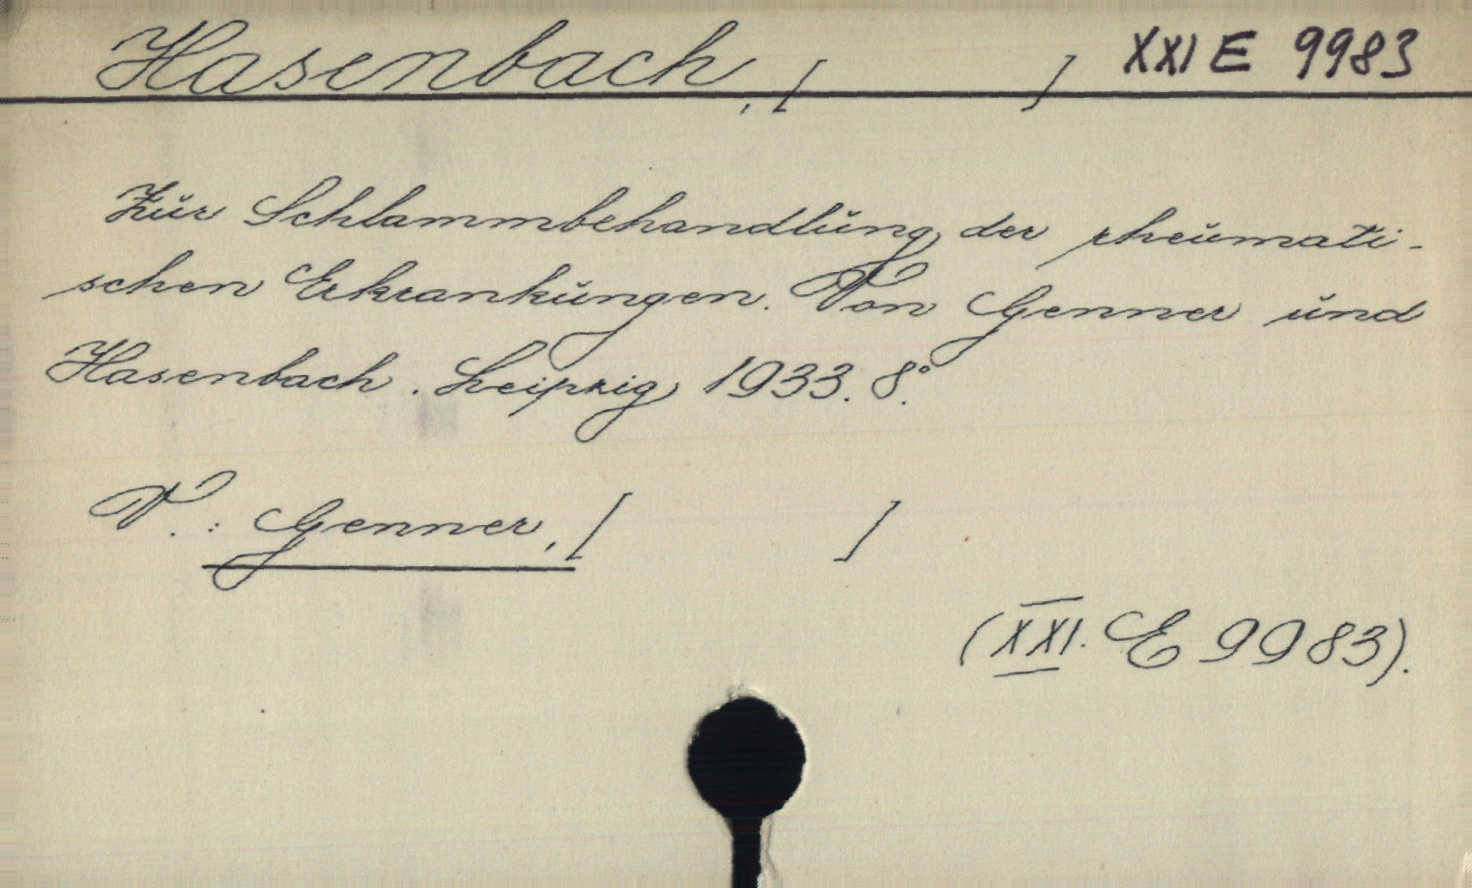 Hasenbach, [ ] XXI E 9983
Zur Schlammbehandlung der rheumati-
schen Erkrankungen. Von Genner und
Hasenbach. Leipzig 1933. 8°.
V.: Genner, [ ]
(XXI. E 9983).